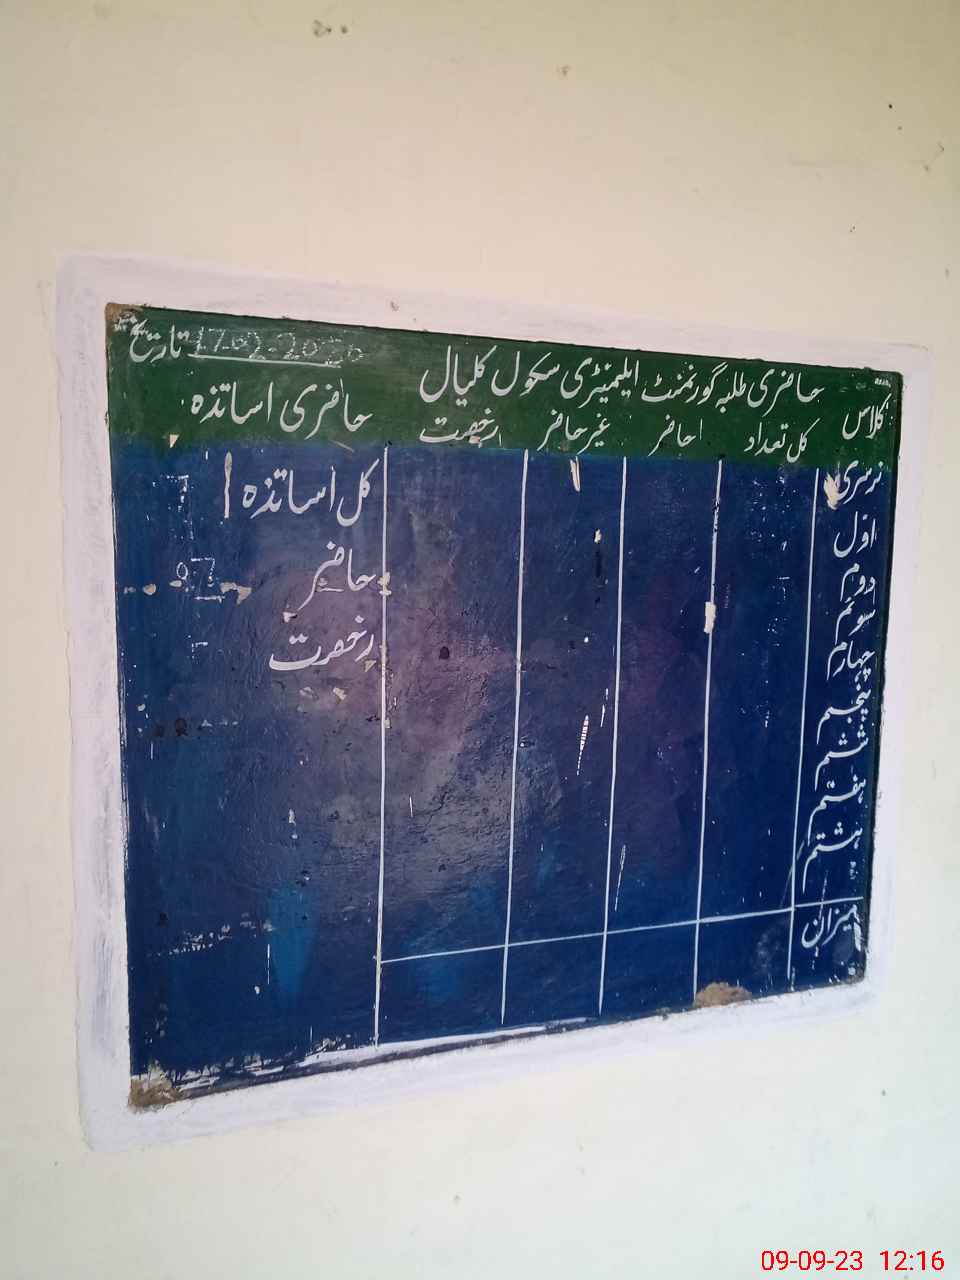 حاضری طلبہ گورنمنٹ ایلیمنٹری سکول کلیال
تاریخ 17-02-2020
کلاس کل تعداد حاضر غیر حاضر رخصت
حاضری اساتذہ
نرسری
اوّل
دوم
سوئم
چہارم
پنجم
ششم
ہفتم
ہشتم
میزان
کل اساتذہ
حاضر 07
رخصت
09-09-23 12:16